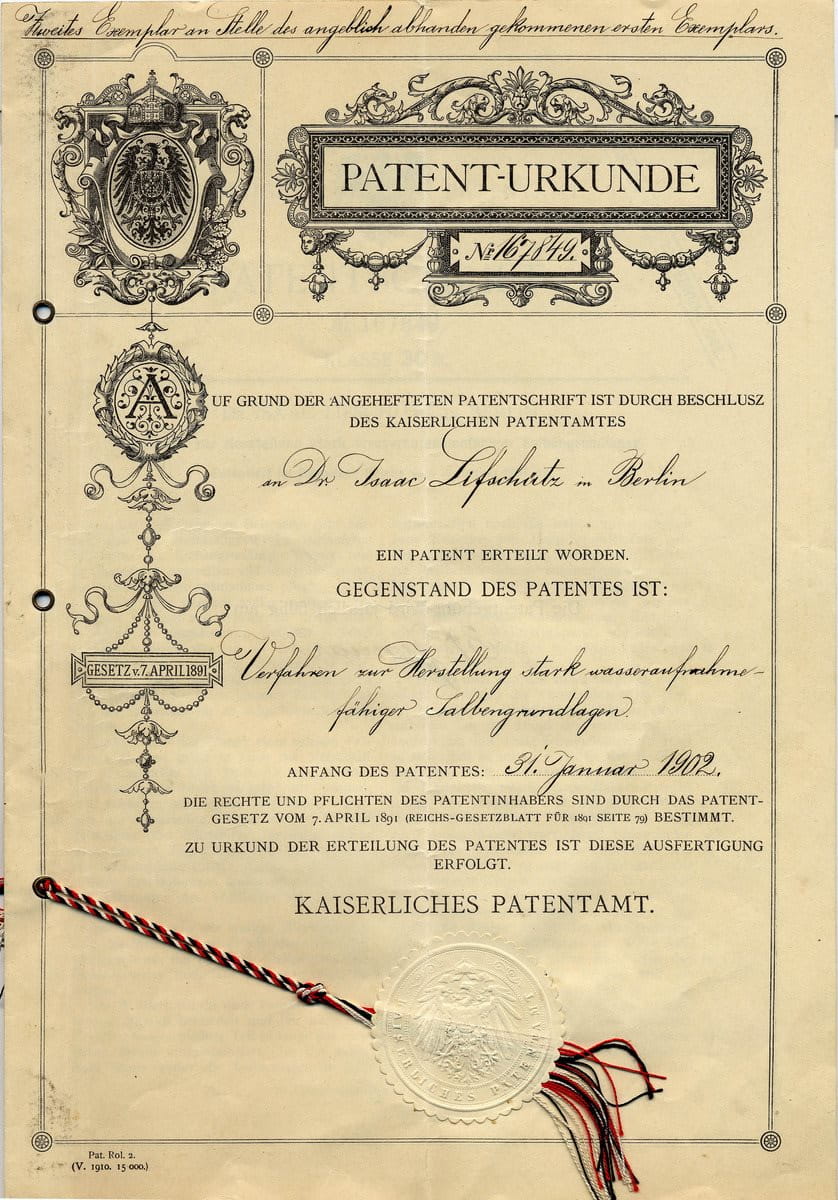 Zweites Exemplar an Stelle des angeblich abhanden gekommenen ersten Exemplars.
PATENT-URKUNDE
No 167849.
AUF GRUND DER ANGEHEFTETEN PATENTSCHRIFT IST DURCH BESCHLUSZ
DES KAISERLICHEN PATENTAMTES
an Dr. Isaac Lifschütz in Berlin
EIN PATENT ERTEILT WORDEN.
GEGENSTAND DES PATENTES IST:
GESETZ v. 7. APRIL 1891
Verfahren zur Herstellung stark wasseraufnahme-
fähiger Salbengrundlagen.
ANFANG DES PATENTES: 31. Januar 1902.
DIE RECHTE UND PFLICHTEN DES PATENTINHABERS SIND DURCH DAS PATENT-
GESETZ VOM 7. APRIL 1891 (REICHS-GESETZBLATT FÜR 1891 SEITE 79) BESTIMMT.
ZU URKUND DER ERTEILUNG DES PATENTES IST DIESE AUSFERTIGUNG
ERFOLGT.
KAISERLICHES PATENTAMT.
KAISERLICHES PATENTAMT
Pat. Rol. 2.
(V. 1910. 15 000.)